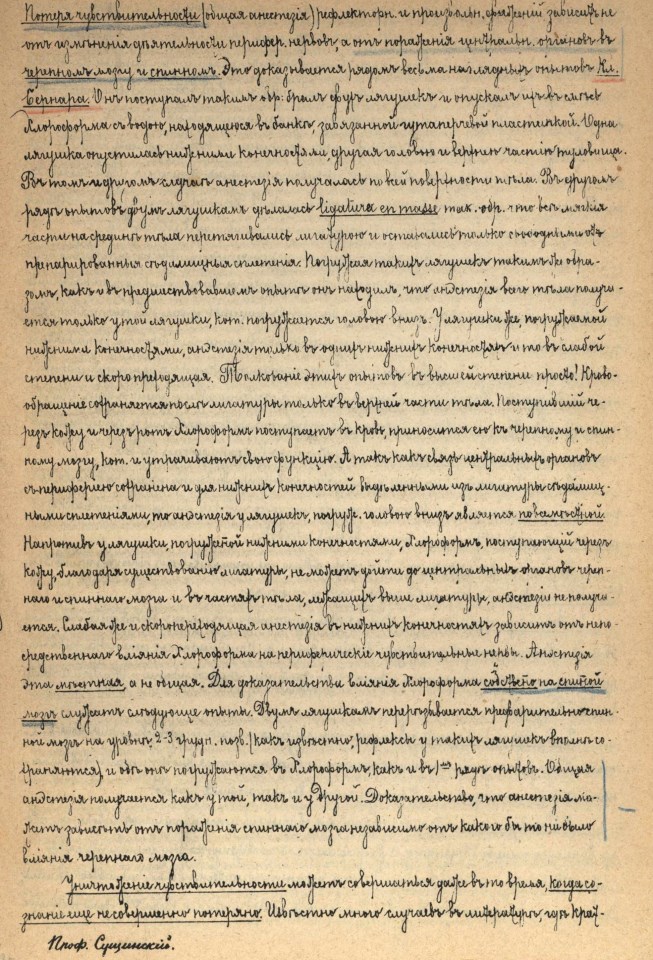 Потеря чувствительности (общая анестезія) рефлекторн. и произвольн. движеній зависитъ не
отъ измѣненія дѣятельности перифер. нервовъ а отъ пораженія центральн. органовъ въ
черепномъ мозгу и спинномъ. Это доказывается рядомъ весьма наглядныхъ опытовъ Кл.
Бернара. Онъ поступалъ такимъ обр: бралъ двухъ лягушекъ и опускалъ ихъ въ смѣсь
Хлороформа съ водою, находящуюся въ банкѣ, завязанной гутаперчевой пластинкой. Одна
лягушка опустилась нижними конечностями, другая головою и верхнею частію туловища.
Въ томъ и другомъ случаѣ анестезія получалась по всей поверхности тѣла. Въ другомъ
рядѣ опытовъ двумъ лягушкамъ дѣлалась ligatura en masse так. обр. что всѣ мягкія
части на срединѣ тѣла перетягивались лигатурою и оставались только свободными от-
препарированныя сѣдалищныя сплетенія. Погружая такихъ лягушекъ такимъ же обра-
зомъ, какъ и въ предшествовавшемъ опытѣ онъ находилъ, что анэстезія всего тѣла получа-
ется только у той лягушки, кот. погружается головою внизъ. У лягушки же, погружаемой
нижними конечностями, анэстезія только въ однихъ нижнихъ конечностяхъ и то въ слабой
степени и скоро преходящая. Толкованіе этихъ опытовъ въ высшей степени просто! Крово-
обращеніе сохраняется послѣ лигатуры только въ верхней части тѣла. Поступившій че-
резъ кожу и черезъ ротъ Хлороформъ поступаетъ въ кровь, приносится ею къ черепному и спин-
ному мозгу, кот. и утрачиваютъ свою функцію. А такъ какъ связь центральныхъ органовъ
съ периферіею сохранена и для нижнихъ конечностей выдѣленными изъ лигатуры сѣдалищ-
ными сплетеніями, то анэстезія у лягушекъ, погруж. головою внизъ является повсемѣстной.
Напротивъ у лягушки, погруженной нижними конечностями, Хлороформъ, поступающій черезъ
кожу, благодаря существованію лигатуры, не можетъ дойти до центральныхъ органовъ череп-
наго и спиннаго мозга и въ частяхъ тѣла, лежащихъ выше лигатуры, анэстезіи не получа-
ется. Слабая же и скоропереходящая анестезія въ нижнихъ конечностяхъ зависитъ отъ непо-
средственнаго вліянія Хлороформа на периферическіе чувствительные нервы. Анэстезія
эта мѣстная, а не общая. Для доказательства вліянія Хлороформа собств. на спинной
мозгъ служатъ слѣдующіе опыты. Двумъ лягушкамъ перерѣзывается предварительно спин-
ной мозгъ на уровнѣ 2-3 грудн. позв. (какъ извѣстно, рефлексы у такихъ лягушекъ вполнѣ со-
храняются), и обѣ онѣ погружаются въ Хлороформъ, какъ и въ 1мъ рядѣ опытовъ. Общая
анэстезія получается какъ у той, такъ и у другой. Доказательство, что анестезія мо-
жетъ зависѣть отъ пораженія спиннаго мозга независимо отъ какого бы то ни было
вліянія черепнаго мозга.
Уничтоженіе чувствительности можетъ совершаться даже въ то время, когда со-
знаніе еще не совершенно потеряно. Извѣстно много случаевъ въ литературѣ, гдѣ
Проф. Сущинскій.